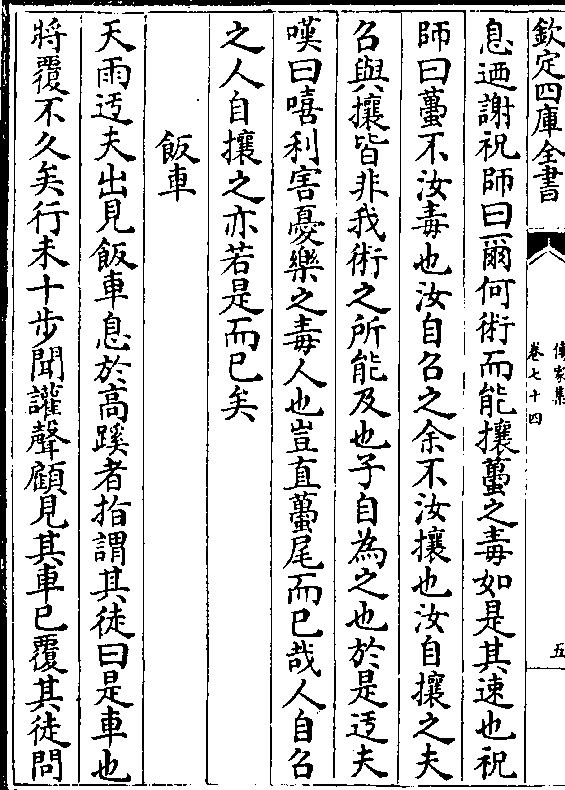 欽定四庫全書
傳家集
卷七十四
五
息迺謝祝師曰爾何術而能攘蠆之毒如是其速也祝
師曰蠆不汝毒也汝自召之余不汝攘也汝自攘之夫
召與攘皆非我術之所能及也子自為之也於是迃夫
嘆曰嘻利害憂樂之毒人也豈直蠆尾而已哉人自召
之人自攘之亦若是而已矣
飯車
天雨迃夫出見飯車息於高蹊者指謂其徒曰是車也
將覆不久矣行未十步聞讙聲顧見其車已覆其徒問